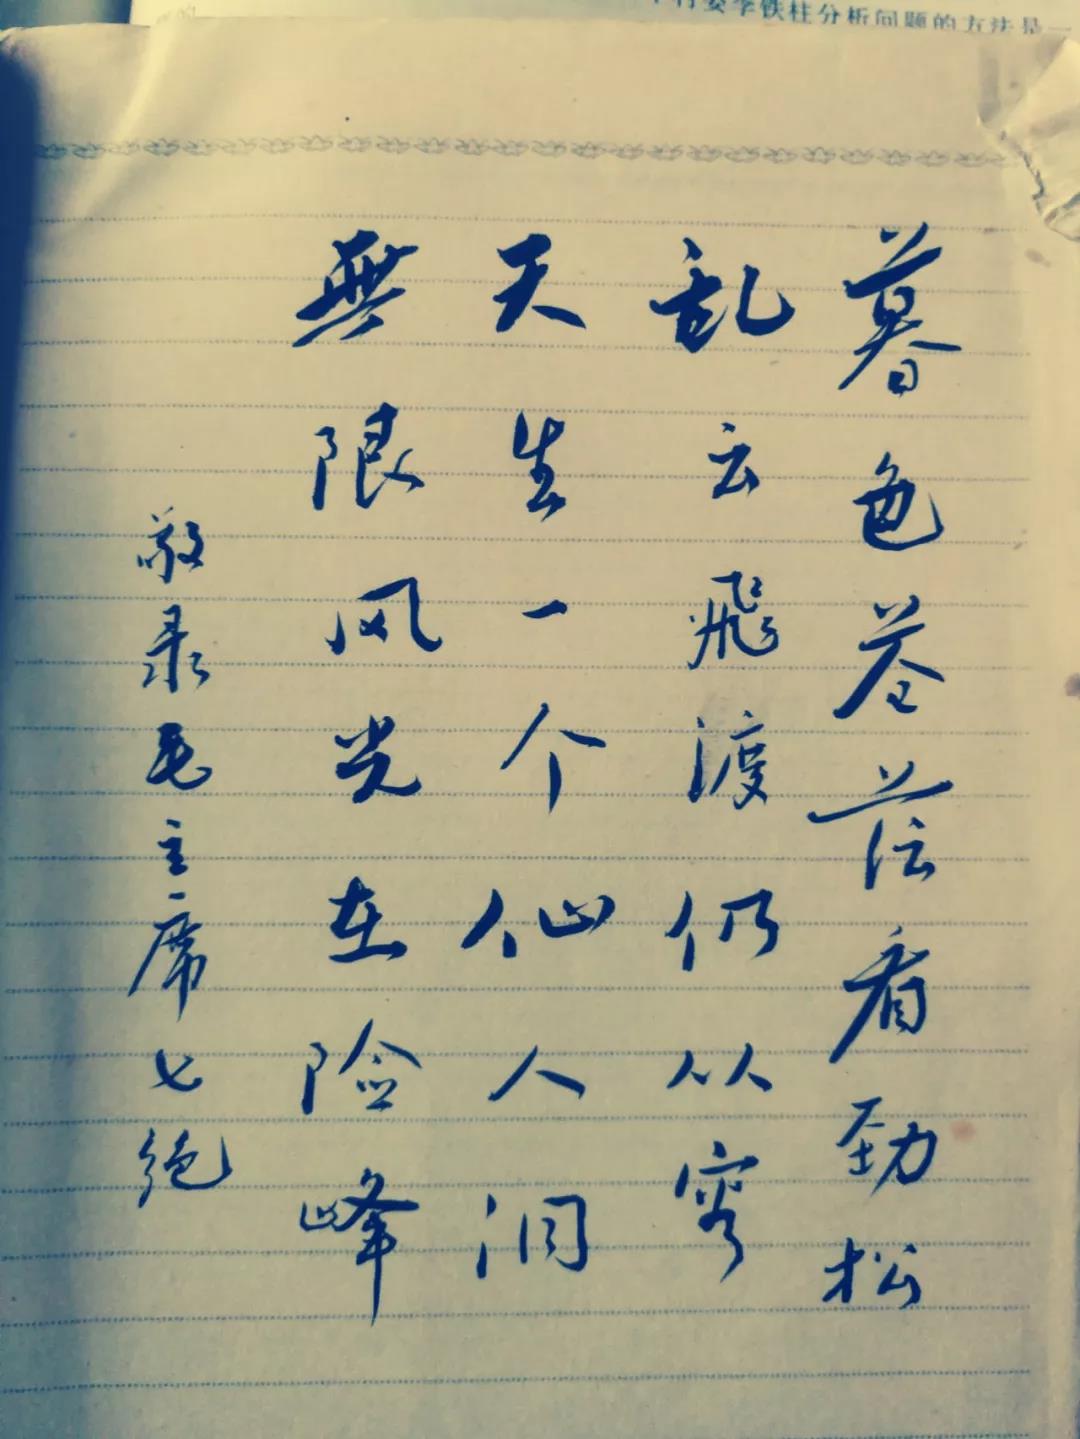 村委李铁柱分析问题的方法是一
暮色苍茫看劲松
乱云飛渡仍从容
天生一个仙人洞
無限风光在险峰
敬录毛主席七绝